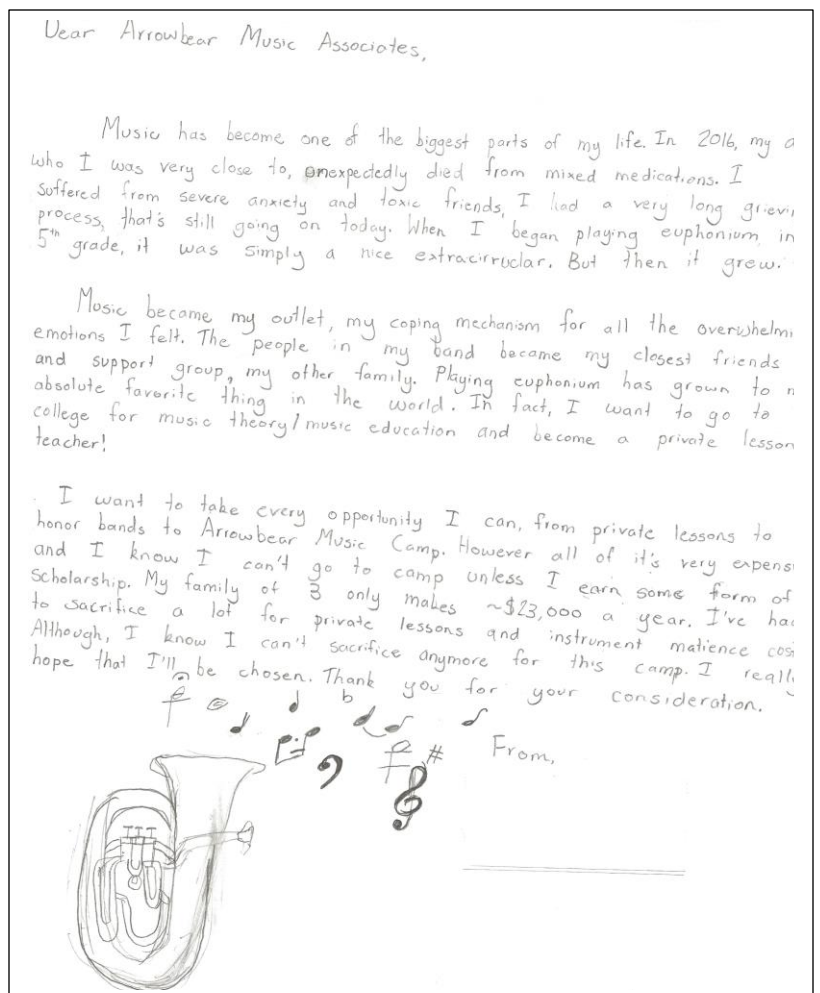 Dear Arrowbear Music Associates,
Music has become one of the biggest parts of my life. In 2016, my
who I was very close to, unexpectedly died from mixed medications. I
suffered from severe anxiety and toxic friends, I had a very long grievin
process, that's still going on today. When I began playing euphonium in
5th grade, it was simply a nice extracirruclar. But then it grew.
Music became my outlet, my coping mechanism for all the overwhelmi
emotions I felt. The people in my band became my closest friends
and support group, my other family. Playing euphonium has grown to
absolute favorite thing in the world. In fact, I want to go to
college for music theory/music education and become a private lesson
teacher!
I want to take every opportunity I can, from private lessons to
honor bands to Arrowbear Music Camp. However all of it's very expens
and I know I can't go to camp unless I earn some form of
scholarship. My family of 3 only makes ~$23,000 a year. I've had
to sacrifice a lot for private lessons and instrument matience cos
Although, I know I can't sacrifice anymore for this camp. I really
hope that I'll be chosen. Thank you for your consideration.
From,